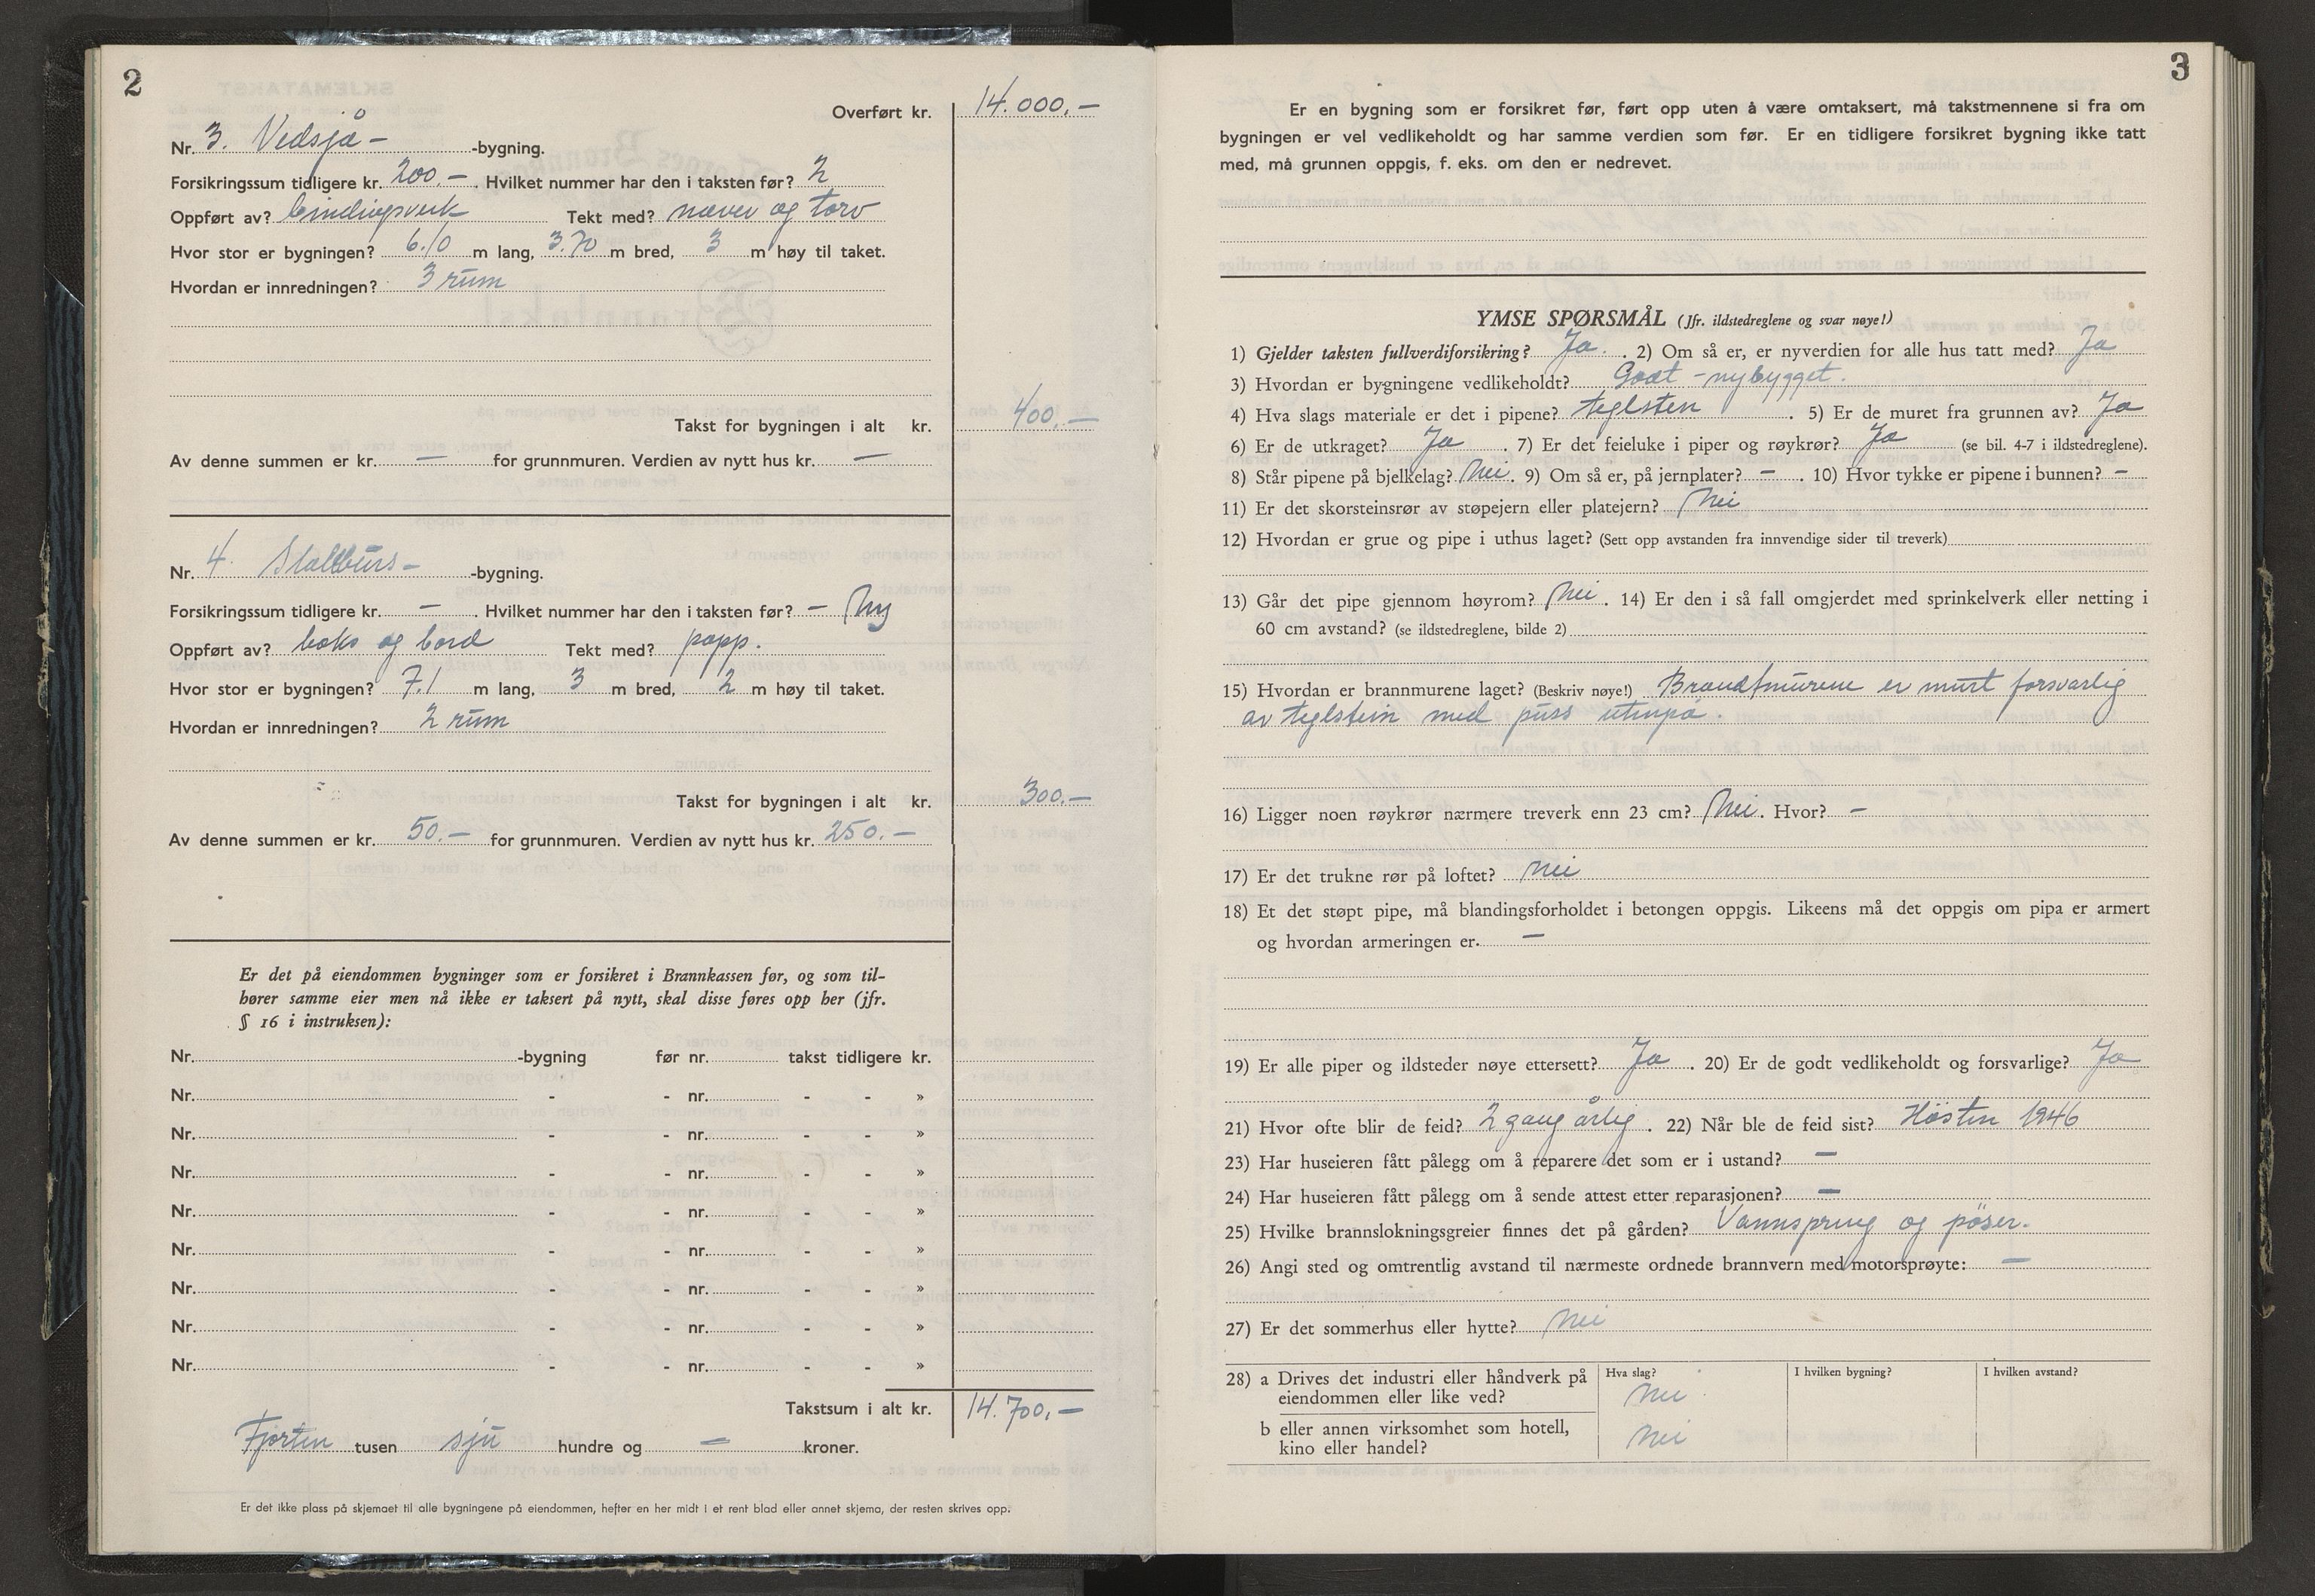 2
Overført kr. 14.000.-
Nr. 3. Vedsjå- -bygning.
Forsikringssum tidligere kr. 200.- . Hvilket nummer har den i taksten før? 2
Oppført av? bindingsverk Tekt med? never og torv
Hvor stor er bygningen? 6.10 m lang, 3.70 m bred, 3 m høy til taket.
Hvordan er innredningen? 3 rum
Takst for bygningen i alt kr. 400.-
Av denne summen er kr. — for grunnmuren. Verdien av nytt hus kr. —
Nr. 4. Stabburs- -bygning.
Forsikringssum tidligere kr. — . Hvilket nummer har den i taksten før? — Ny
Oppført av? og bord Tekt med? papp.
Hvor stor er bygningen? 7.1 m lang, 3 m bred, 2 m høy til taket.
Hvordan er innredningen? 2 rum
Takst for bygningen i alt kr. 300.-
Av denne summen er kr. 50.- for grunnmuren. Verdien av nytt hus kr. 250.-
Er det på eiendommen bygninger som er forsikret i Brannkassen før, og som til-
hører samme eier men nå ikke er taksert på nytt, skal disse føres opp her (jfr.
§ 16 i instruksen):
Nr. -bygning før nr. takst tidligere kr.
Nr. - - nr. - - »
Nr. - - nr. - - »
Nr. - - nr. - - »
Nr. - - nr. - - »
Nr. - - nr. - - »
Nr. - - nr. - - »
Nr. - - nr. - - »
Nr. - - nr. - - »
Takstsum i alt kr. 14.700.-
Fjorten tusen sju hundre og — kroner.
Er det ikke plass på skjemaet til alle bygningene på eiendommen, hefter en her midt i et rent blad eller annet skjema, der resten skrives opp.
3
Er en bygning som er forsikret før, ført opp uten å være omtaksert, må takstmennene si fra om
bygningen er vel vedlikeholdt og har samme verdien som før. Er en tidligere forsikret bygning ikke tatt
med, må grunnen oppgis, f. eks. om den er nedrevet.
YMSE SPØRSMÅL (Jfr. ildstedreglene og svar nøye!)
1) Gjelder taksten fullverdiforsikring? Ja. . 2) Om så er, er nyverdien for alle hus tatt med? Ja
3) Hvordan er bygningene vedlikeholdt? Godt - nybygget.
4) Hva slags materiale er det i pipene? teglsten . 5) Er de muret fra grunnen av? Ja
6) Er de utkraget? Ja . 7) Er det feieluke i piper og røykrør? Ja (se bil. 4-7 i ildstedreglene).
8) Står pipene på bjelkelag? Nei . 9) Om så er, på jernplater? — . 10) Hvor tykke er pipene i bunnen? —
11) Er det skorsteinsrør av støpejern eller platejern? Nei
12) Hvordan er grue og pipe i uthus laget? (Sett opp avstanden fra innvendige sider til treverk)
13) Går det pipe gjennom høyrom? Nei . 14) Er den i så fall omgjerdet med sprinkelverk eller netting i
60 cm avstand? (se ildstedreglene, bilde 2)
15) Hvordan er brannmurene laget? (Beskriv nøye!) Brandmurene er murt forsvarlig
av teglstein med puss utenpå.
16) Ligger noen røykrør nærmere treverk enn 23 cm? Nei . Hvor? —
17) Er det trukne rør på loftet? Nei
18) Et det støpt pipe, må blandingsforholdet i betongen oppgis. Likeens må det oppgis om pipa er armert
og hvordan armeringen er. —
19) Er alle piper og ildsteder nøye ettersett? Ja . 20) Er de godt vedlikeholdt og forsvarlige? Ja
21) Hvor ofte blir de feid? 2 gang årlig . 22) Når ble de feid sist? Hösten 1946
23) Har huseieren fått pålegg om å reparere det som er i ustand? —
24) Har huseieren fått pålegg om å sende attest etter reparasjonen? —
25) Hvilke brannslokningsgreier finnes det på gården? Vannspring og pöser.
26) Angi sted og omtrentlig avstand til nærmeste ordnede brannvern med motorsprøyte: —
27) Er det sommerhus eller hytte? Nei
28) a Drives det industri eller håndverk på Hva slag? I hvilken bygning? I hvilken avstand?
eiendommen eller like ved? Nei
b eller annen virksomhet som hotell,
kino eller handel? Nei